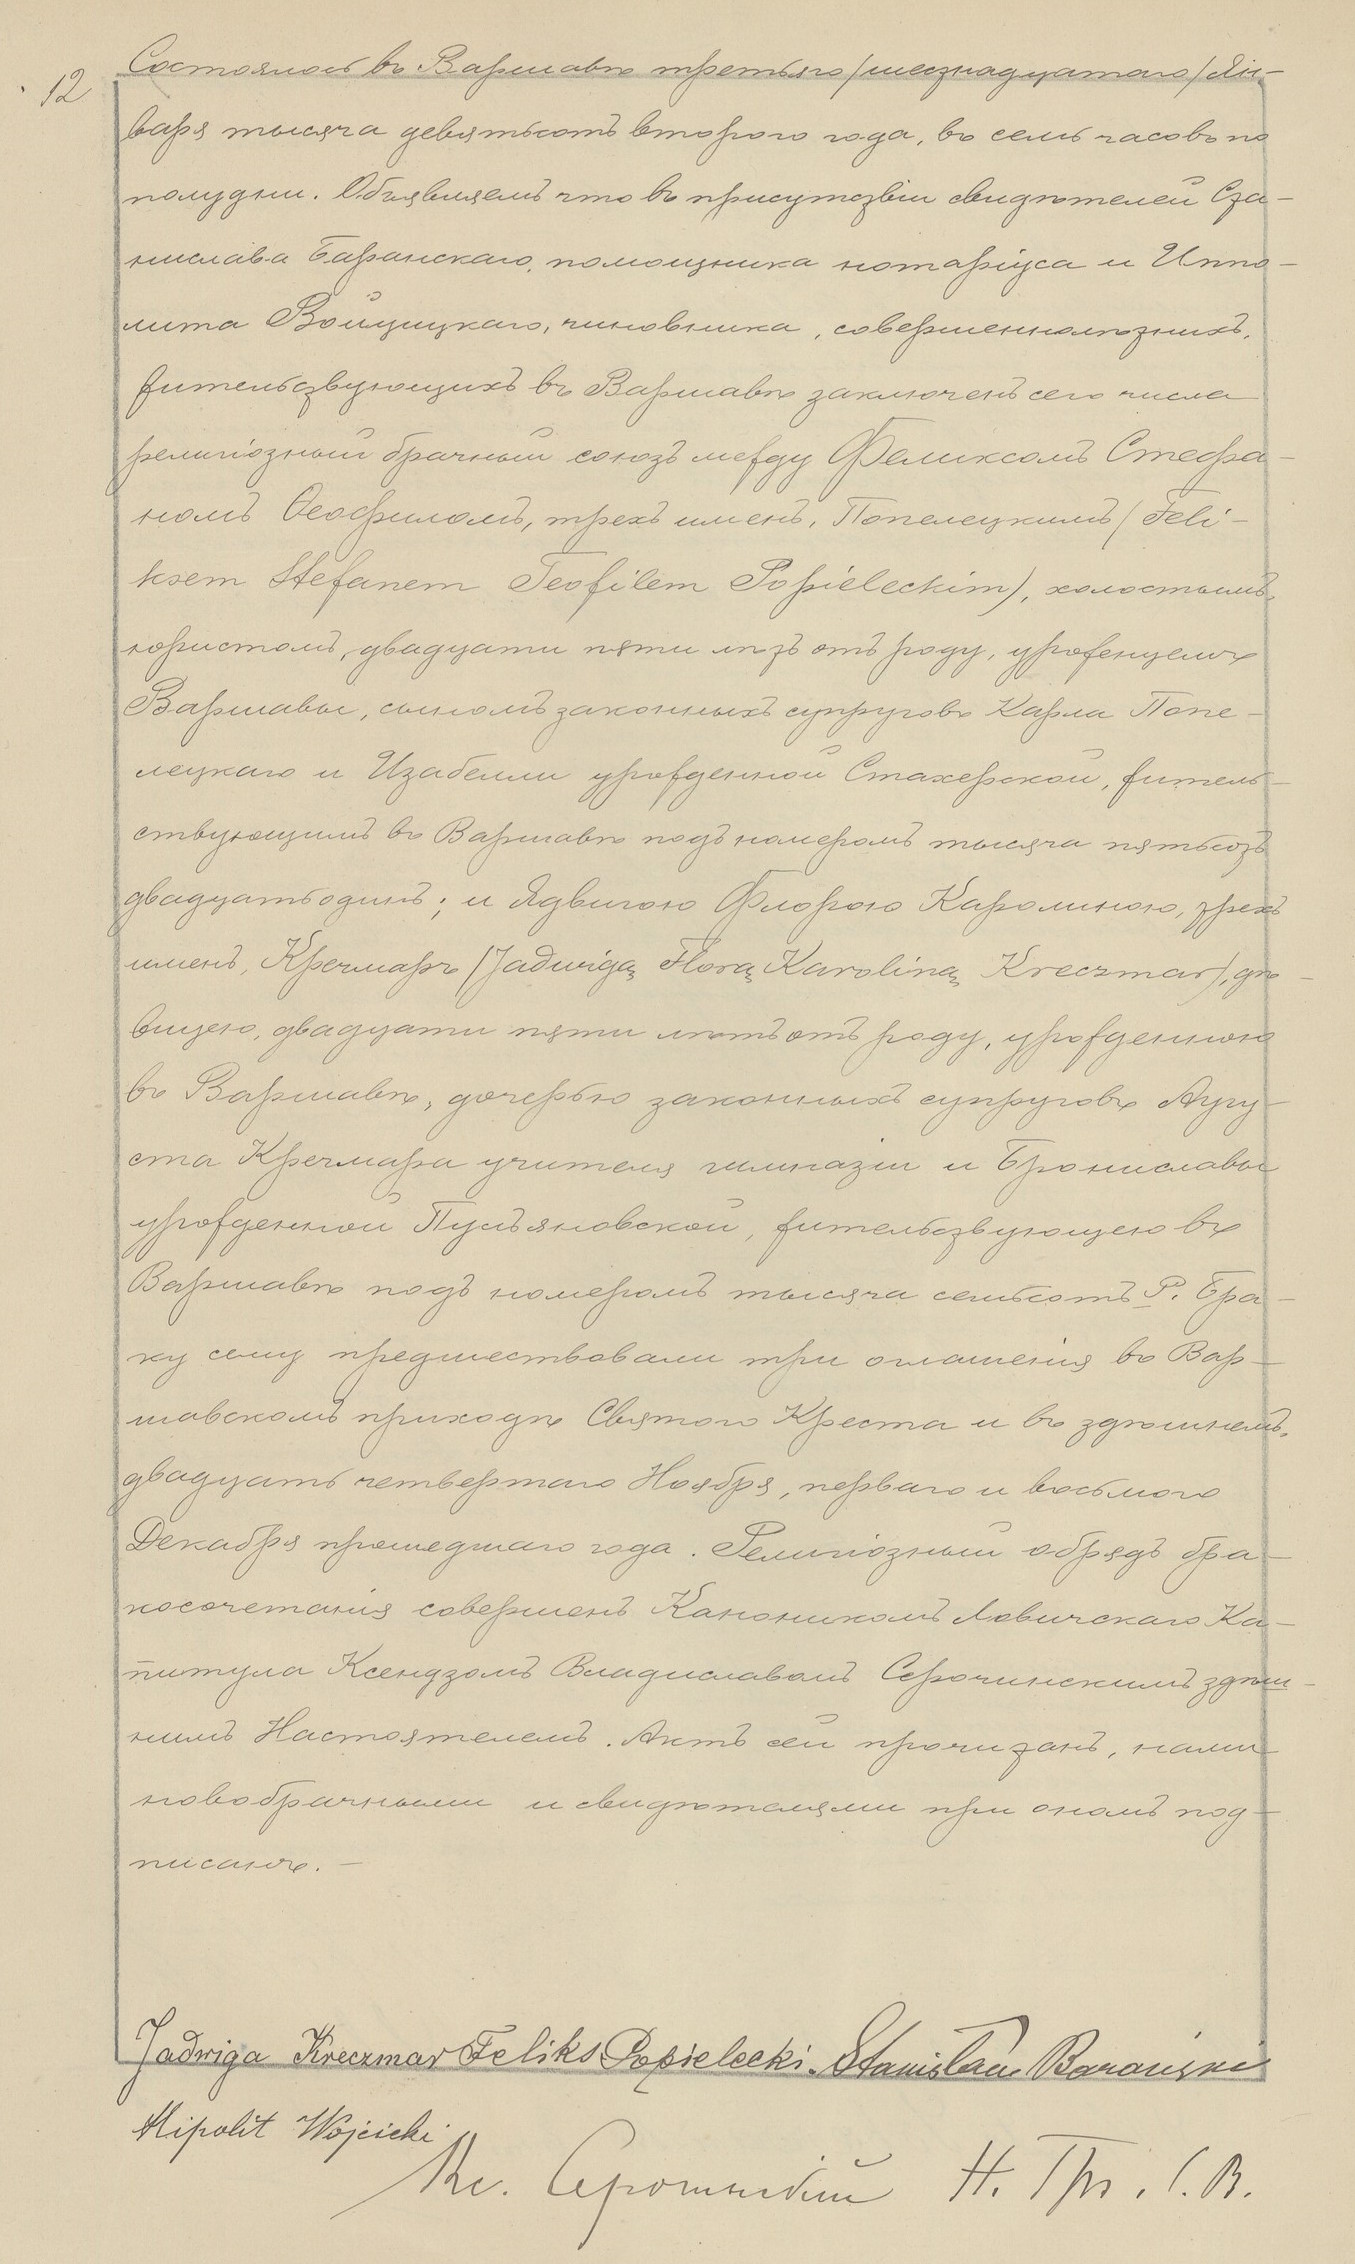 12
Состоялось въ Варшавѣ третьяго /шестнадцатаго/ Ян-
варя тысяча девятьсотъ второго года, въ семь часовъ по
полудни. Объявляемъ что въ присутствіи свидѣтелей Ста-
нислава Баранскаго, помощника нотаріуса и Иппо-
лита Войцицкаго, чиновника, совершеннолѣтнихъ,
жительствующихъ въ Варшавѣ заключенъ сего числа
религіозный брачный союзъ между Феликсомъ Стефа-
номъ Ѳеофиломъ, трехъ именъ, Попелецкимъ (Feli-
ksem Stefanem Teofilem Popieleckim), холостымъ,
юристомъ, двадцати пяти лѣтъ отъ роду, урожденцемъ
Варшавы, сыномъ законныхъ супруговъ Карла Попе-
лецкаго и Изабелли урожденной Стахерской, житель-
ствующимъ въ Варшавѣ подъ номеромъ тысяча пятьсотъ
двадцать одинъ; и Ядвигою Флорою Каролиною, трехъ
именъ, Кречмаръ (Jadwigą Florą Karoliną Kreczmar), дѣ-
вицею, двадцати пяти лѣтъ отъ роду, урожденною
въ Варшавѣ, дочерью законныхъ супруговъ Авгу-
ста Кречмара учителя гимназіи и Брониславы
урожденной Пульяновской, жительствующею въ
Варшавѣ подъ номеромъ тысяча семьсотъ Р. Бра-
ку сему предшествовали три оглашенія въ Вар-
шавскомъ приходѣ Святого Креста и въ здѣшнемъ,
двадцать четвертаго Ноября, перваго и восьмого
Декабря прошедшаго года. Религіозный обрядъ бра-
косочетанія совершенъ Каноникомъ Ловичскаго Ка-
питула Ксендзомъ Владиславомъ Серочинскимъ здѣш-
нимъ Настоятелемъ. Актъ сей прочитанъ, нами
новобрачными и свидѣтелями при ономъ под-
писанъ. —
Jadwiga Kreczmar Feliks Popielecki. Stanisław Barański
Hipolit Wójcicki
Кс. Серочинскій Н. Пр. С. В.